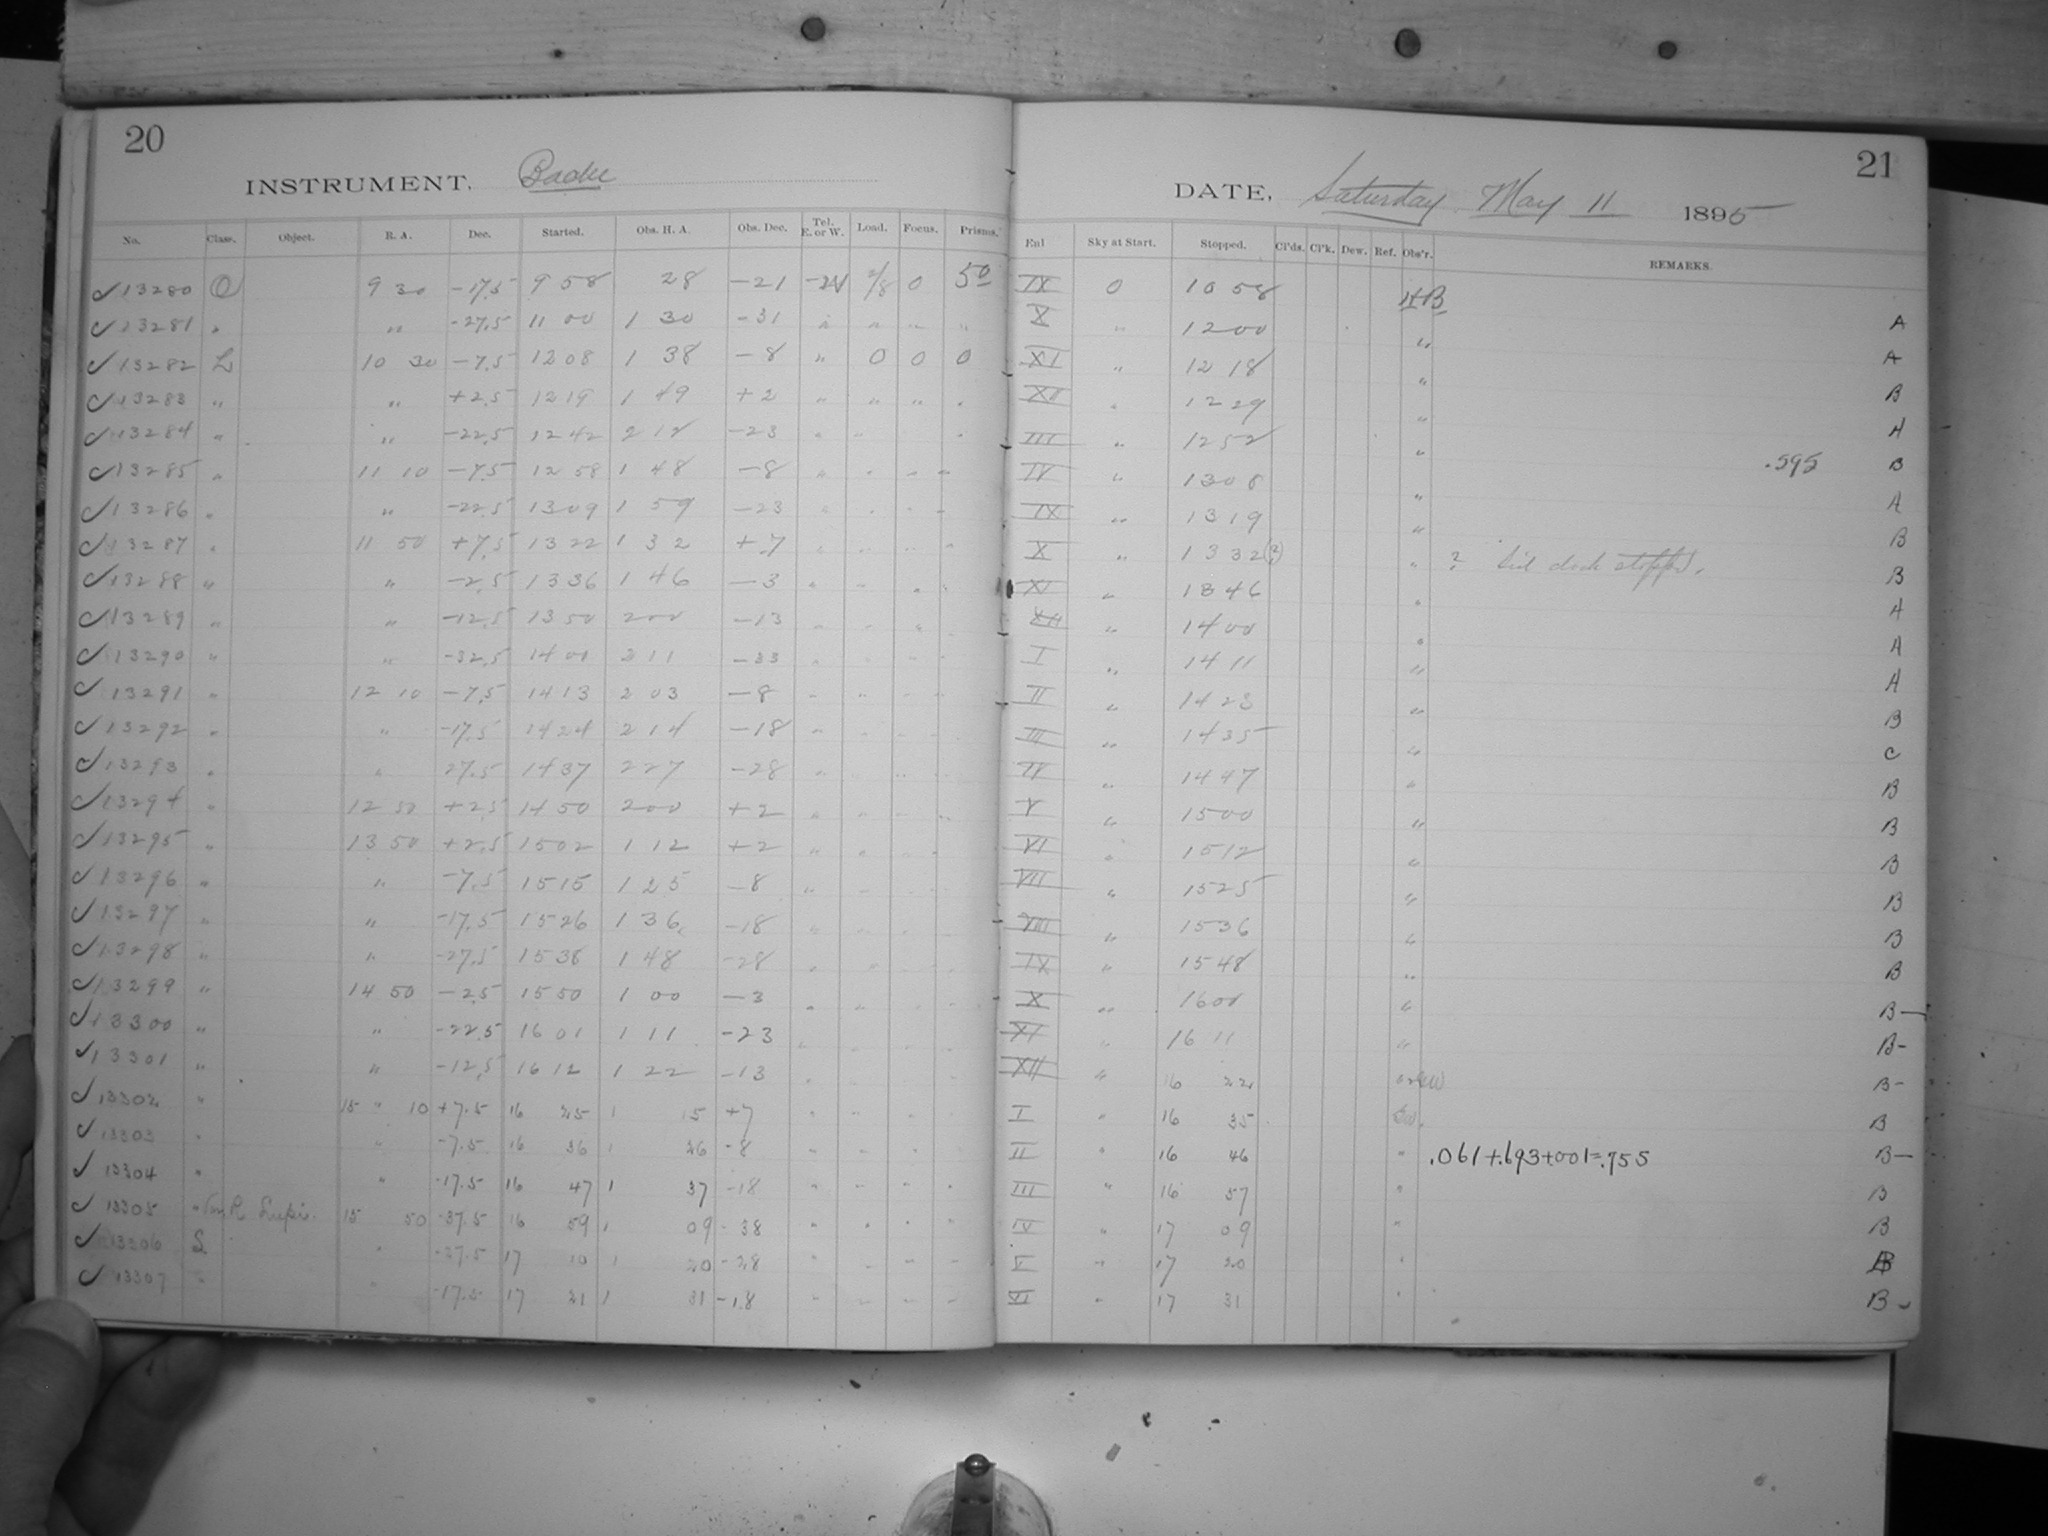 20
INSTRUMENT,
No. Class. Object. R. A. Dec. Started. Obs. H. A. Obs. Dec. Tel. E. or W. Load. Focus. Prisms.
13280 O 9 30 -17.5 9 58 28 -21 0 50
13281 " " -27.5 11 00 1 30 -31 " " " "
13282 L 10 30 -7.5 12 08 1 38 -8 " 0 0 0
13283 " " +2.5 12 19 1 49 +2 " " " "
13284 " " -22.5 12 42 2 12 -23 " " "
13285 " 11 10 -7.5 12 58 1 48 -8 " " " "
13286 " " -22.5 13 09 1 59 -23 " " " "
13287 " 11 50 +7.5 13 22 1 32 +7 " " " "
13288 " " -2.5 13 36 1 46 -3 " " " "
13289 " " -12.5 13 50 2 00 -13 " " " "
13290 " " -32.5 14 01 2 11 -33 " " " "
13291 " 12 10 -7.5 14 13 2 03 -8 " " " "
13292 " " -17.5 14 24 2 14 -18 " " " "
13293 " " 27.5 14 37 2 27 -28 " " " "
13294 " 12 50 +2.5 14 50 2 00 +2 " " " "
13295 " 13 50 +2.5 15 02 1 12 +2 " " " "
13296 " " -7.5 15 15 1 25 -8 " " " "
13297 " " -17.5 15 26 1 36 -18 " " " "
13298 " " -27.5 15 38 1 48 -28 " " " "
13299 " 14 50 -2.5 15 50 1 00 -3 " " " "
13300 " " -22.5 16 01 1 11 -23 " " " "
13301 " " -12.5 16 12 1 22 -13 " " " "
13302 " 15 " 10 +7.5 16 25 1 15 +7 " " " "
13303 " " -7.5 16 36 1 26 -8 " " " "
13304 " " -17.5 16 47 1 37 -18 " " " "
13305 " R Lupi. 15 50 -37.5 16 59 1 09 -38 " " " "
13306 S " -27.5 17 10 1 20 -28 " " " "
13307 " " -17.5 17 21 1 31 -18 " " " "
21
DATE, Saturday May 11 1895
Sky at Start. Stopped. Cl'ds. Cl'k. Dew. Ref. Obs'r. REMARKS.
IX 0 10 58 HB
X " 12 00 " A
XI " 12 18 " A
XII " 12 29 " B
III " 12 52 " A
IV " 13 08 " .595 B
IX " 13 19 " A
X " 13 32 (?) " ? Sid clock stopped. B
XI " 13 46 " B
XII " 14 00 " A
I " 14 11 " A
II " 14 23 " A
III " 14 35 " B
IV " 14 47 " C
V " 15 00 " B
VI " 15 12 " B
VII " 15 25 " B
VIII " 15 36 " B
IX " 15 48 " B
X " 16 00 " B
XI " 16 11 " B-
XII " 16 22 B-
I " 16 35 B-
II " 16 46 " .061+.693+.001=.755 B-
III " 16 57 " B
IV " 17 09 " B
V " 17 20 "
VI " 17 31 " B-